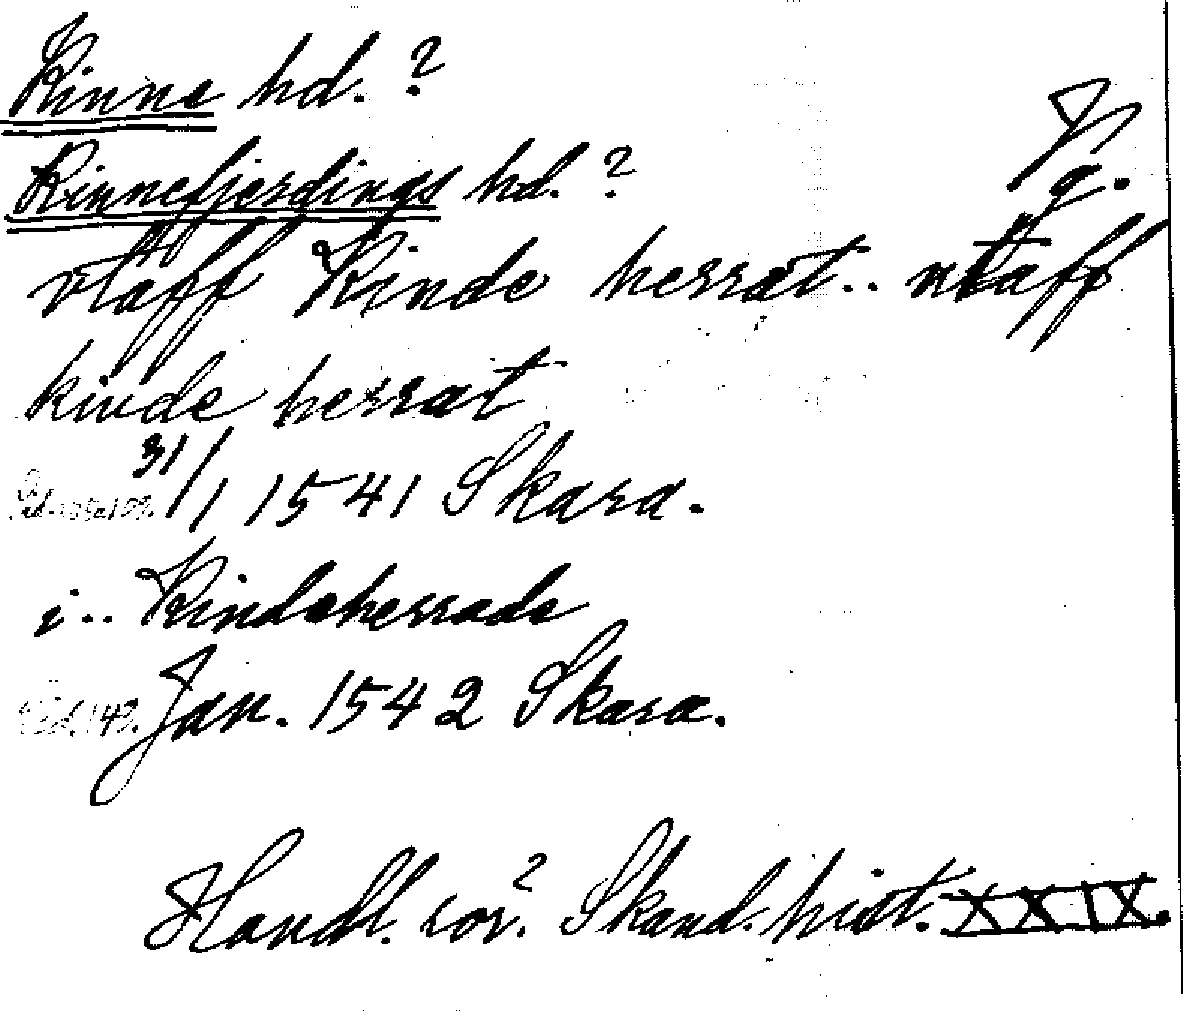 Kinne hd. ?
Kinnefjerdings hd. ?
Vg.
vtaff Kinde herrat .. vtaff
kinde herrat
31/1 1541 Skara.
i .. Kindeherrade
Jan. 1542 Skara.
Handl. rör. Skand. hist. XXIX.